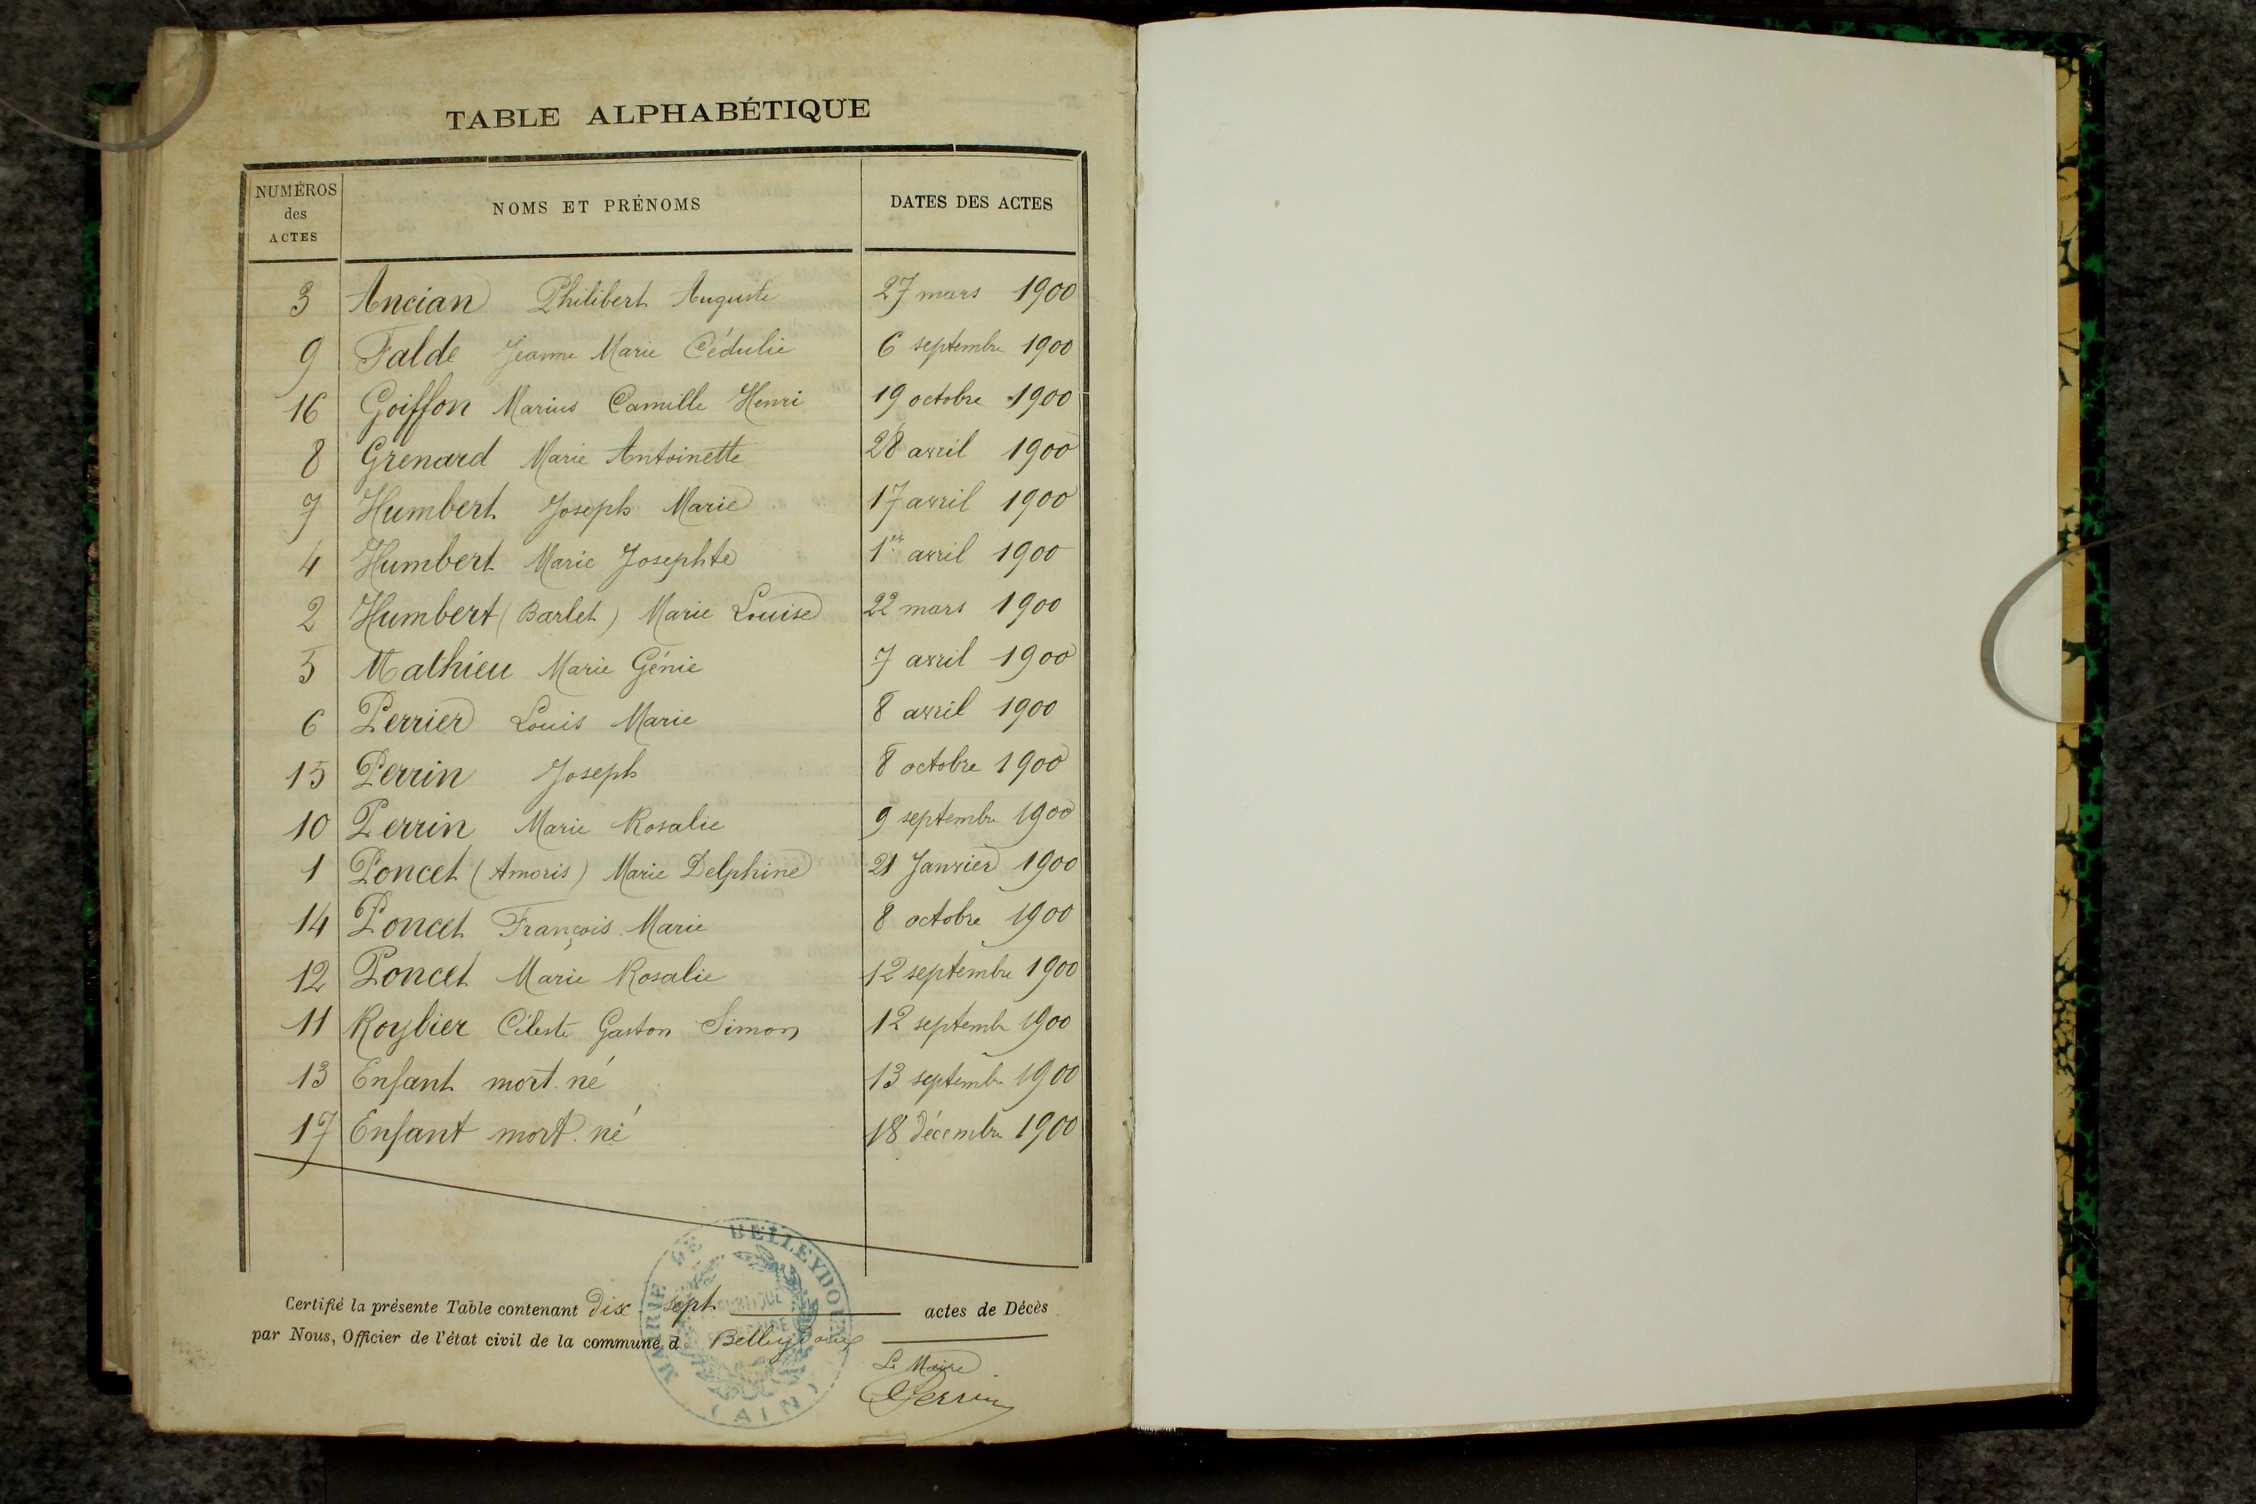 TABLE ALPHABÉTIQUE
NUMÉROS des ACTES NOMS ET PRÉNOMS DATES DES ACTES
3 Ancian Philibert Auguste 27 mars 1900
9 Falde Jeanne Marie Cédulie 6 septembre 1900
16 Goiffon Marius Camille Henri 19 octobre 1900
8 Grenard Marie Antoinette 28 avril 1900
7 Humbert Joseph Marie 17 avril 1900
4 Humbert Marie Josephte 1er avril 1900
2 Humbert (Barlet) Marie Louise 22 mars 1900
5 Mathieu Marie Génie 7 avril 1900
6 Perrier Louis Marie 8 avril 1900
15 Perrin Joseph 8 octobre 1900
10 Perrin Marie Rosalie 9 septembre 1900
1 Poncet (Amoris) Marie Delphine 21 Janvier 1900
14 Poncet François Marie 8 octobre 1900
12 Poncet Marie Rosalie 12 septembre 1900
11 Roybier Céleste Gaston Simon 12 septembre 1900
13 Enfant mort né 13 septembre 1900
17 Enfant mort né 18 décembre 1900
Certifié la présente Table contenant dix sept actes de Décès
par Nous, Officier de l'état civil de la commune d Belleydoux
MAIRIE DE BELLEYDOUX (AIN)
Le Maire
Perrin